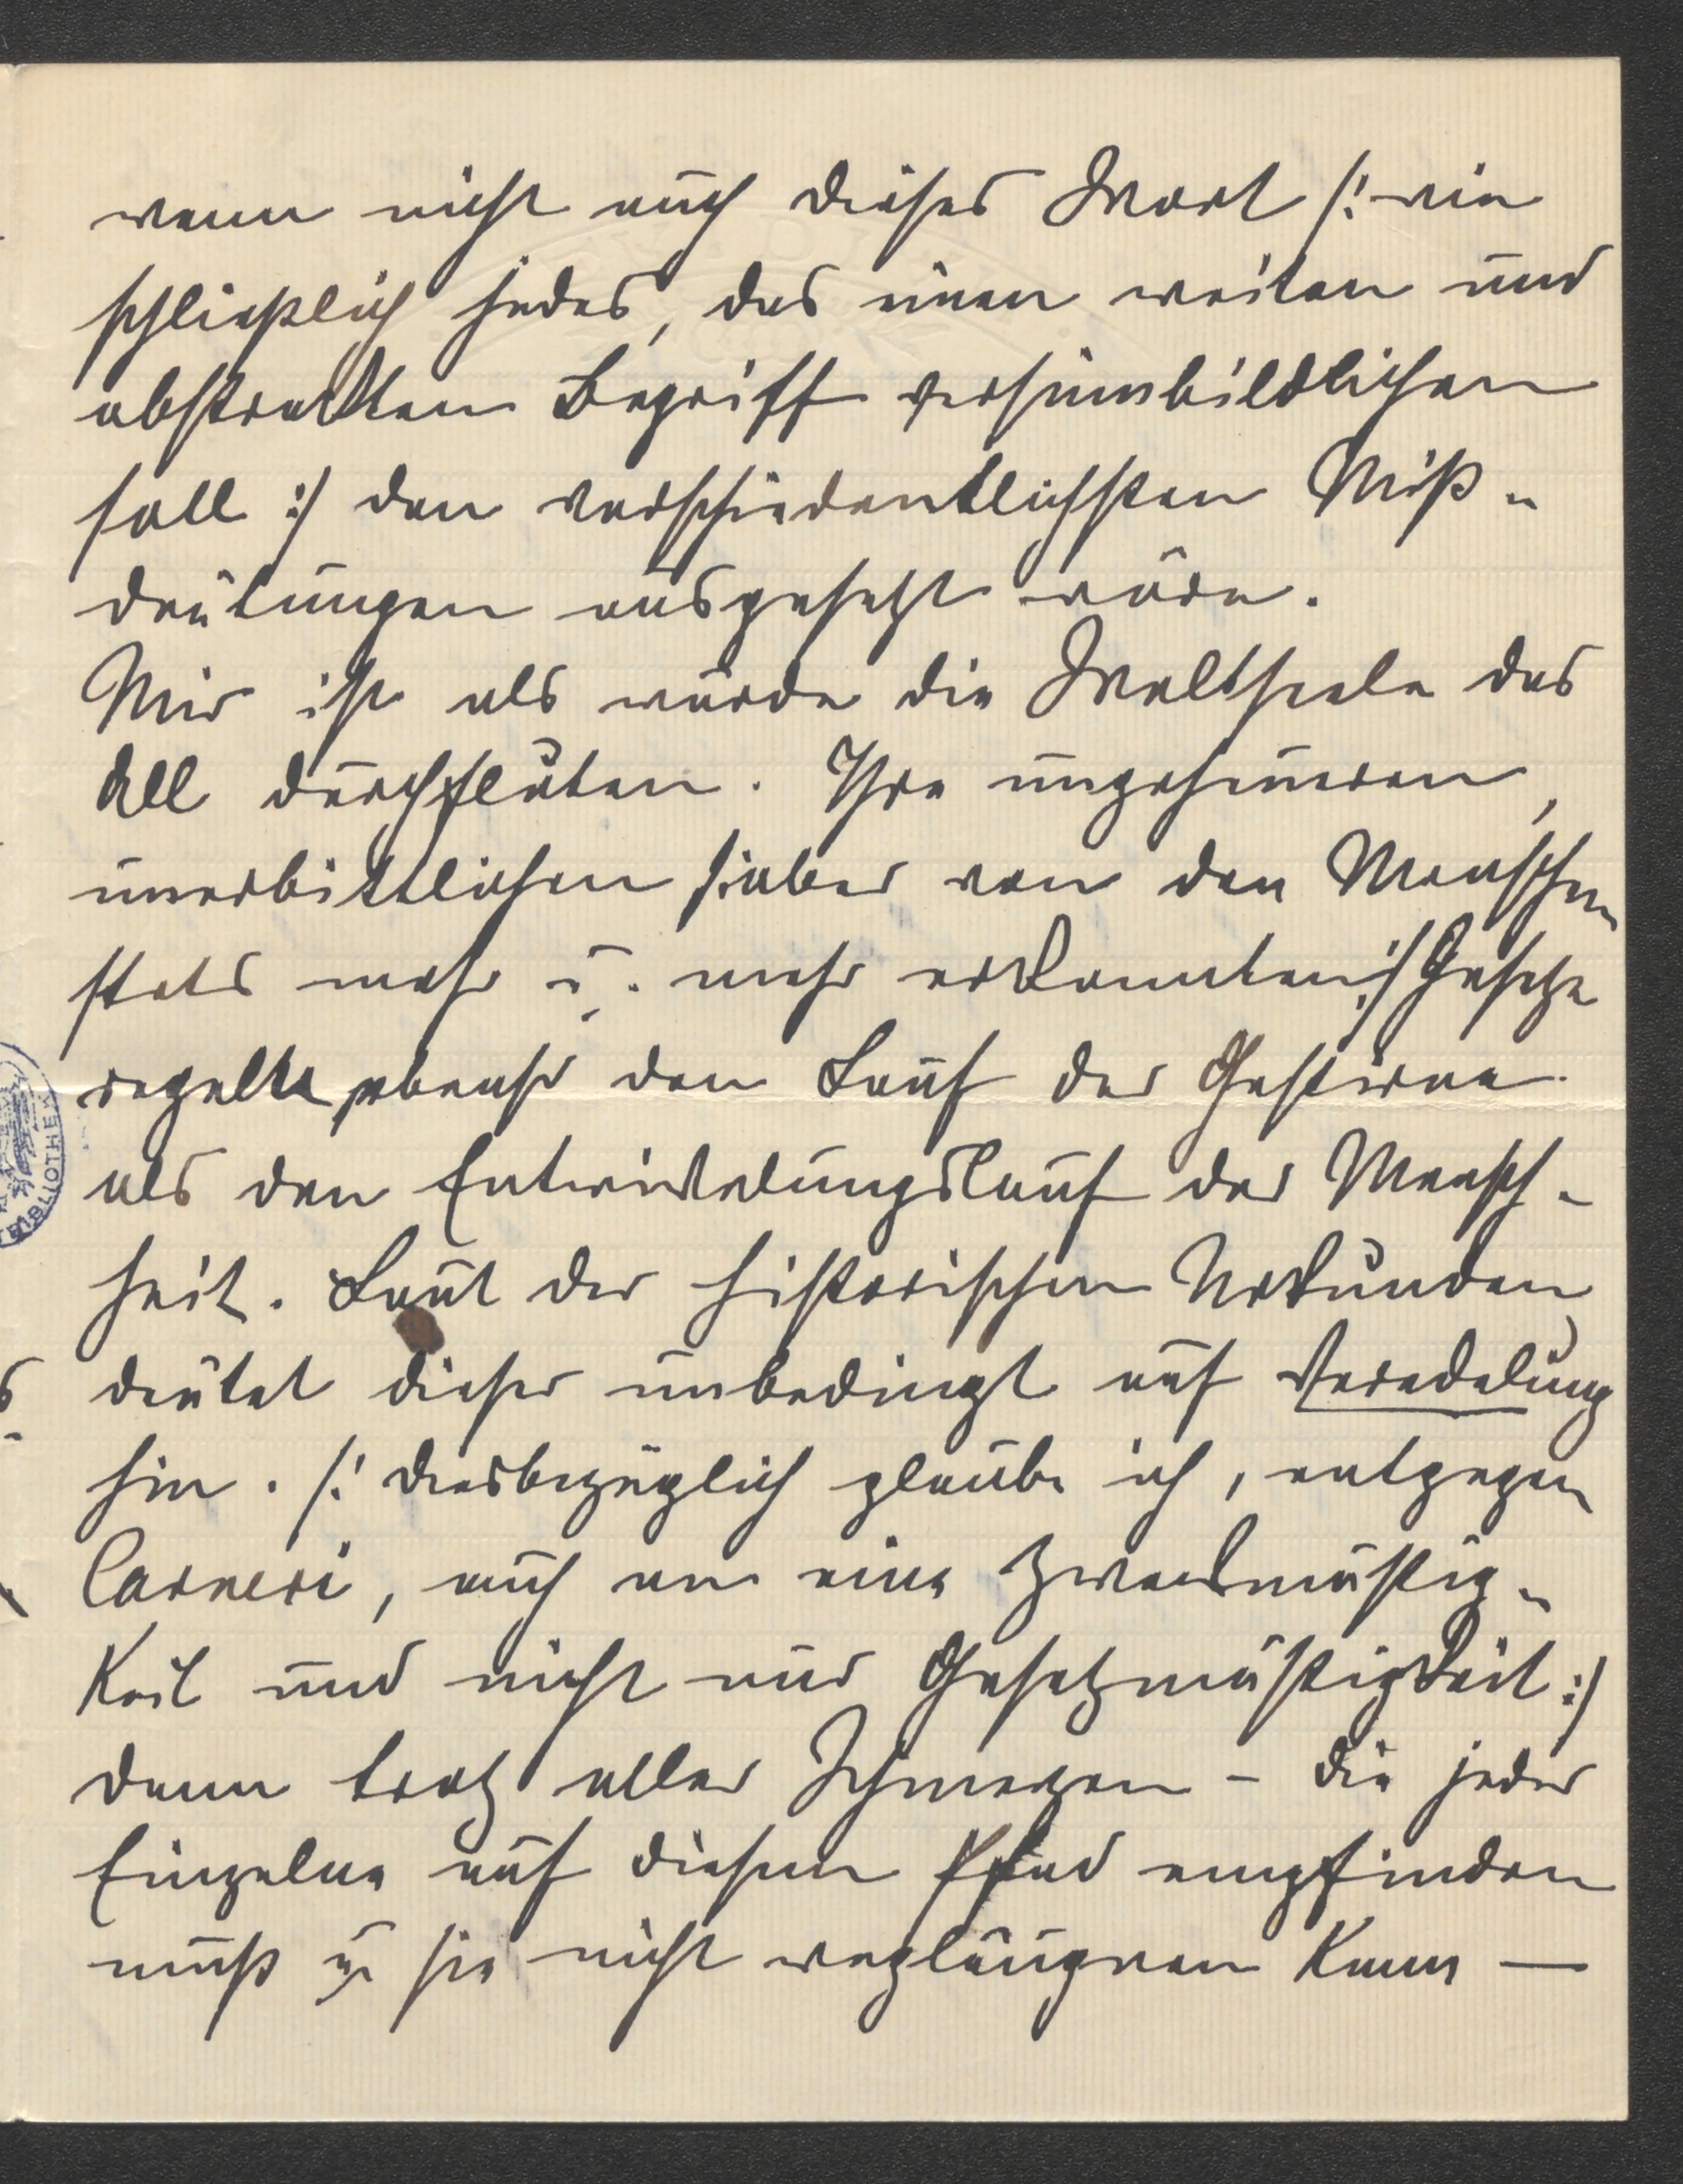 wenn nicht auch dieses Wort /: wie
schließlich jedes, das einen weiten und
abstrakten Begriff versinnbildlichen
soll :/ den verschiedentlichsten Miß-
deutungen ausgesetzt wäre.
Mir ist als würde die Weltseele das
All durchfluten. Ihre ungeheueren,
unerbittlichen /: aber von den Menschen
stets mehr u. mehr erkannten :/ Gesetze
regelten ebenso den Lauf der Gestirne
als den Entwickelungslauf der Mensch-
heit. Laut der historischen Urkunden
deutet dieser unbedingt auf Veredelung
hin. /: diesbezüglich glaube ich, entgegen
Carneri, auch an eine Zweckmäßig-
keit und nicht nur Gesetzmäßigkeit :/
denn trotz aller Schmerzen – die jeder
Einzelne auf diesem Pfad empfinden
muß u. sie nicht wegläugnen kann —
BIBLIOTHEK